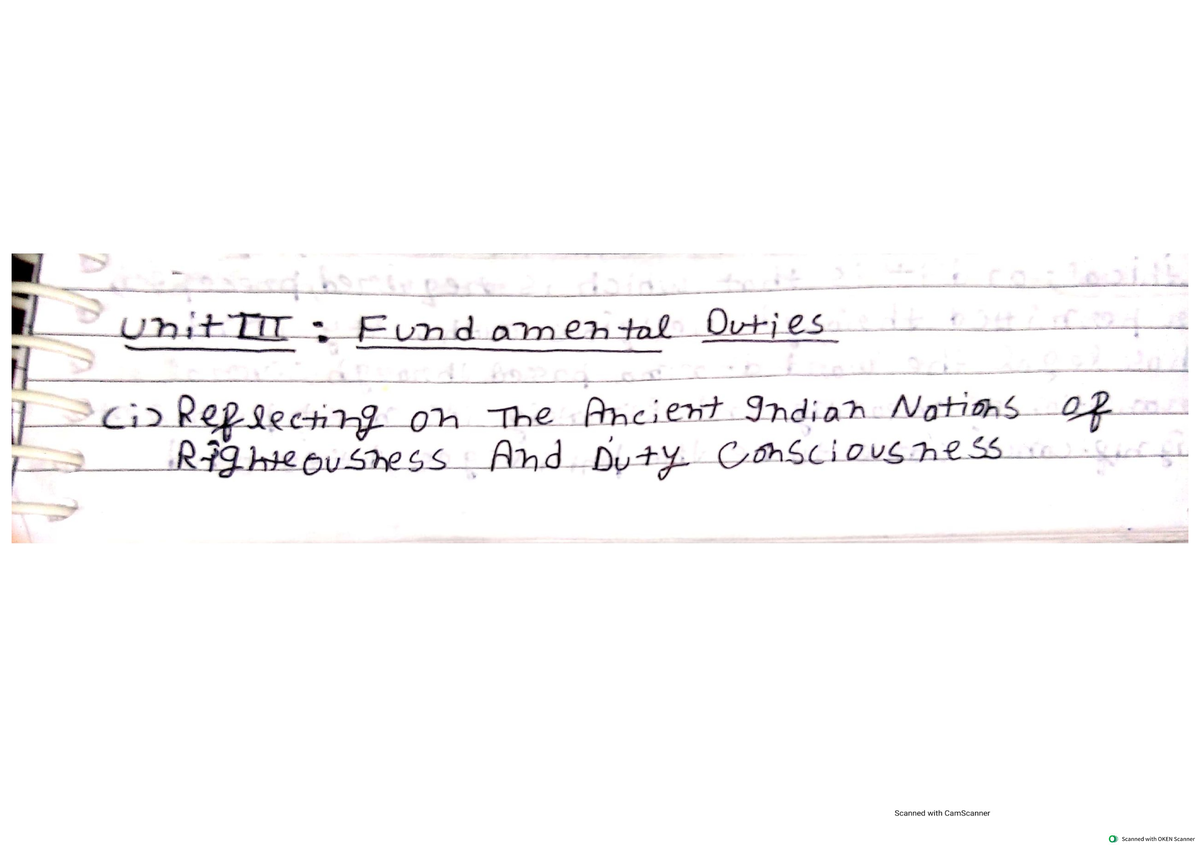 Unit III : Fundamental Duties
(i) Reflecting on The Ancient Indian Notions of
Righteousness And Duty Consciousness
Scanned with CamScanner
Scanned with OKEN Scanner